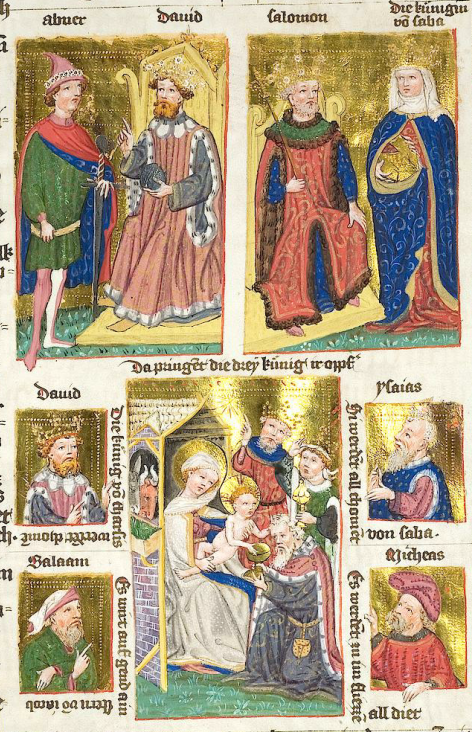 abner
Dauid
salomon
Die künigin
vō saba
Da pringēt die dreÿ künig ir opf̄
Dauid
Die künig vō tharsis
ysaias
Si werdēt all chomēt
von saba.
Balaam
Es wirt auf gend ain
stern vō iacob
Micheas
Es werdēt zu im
all diet